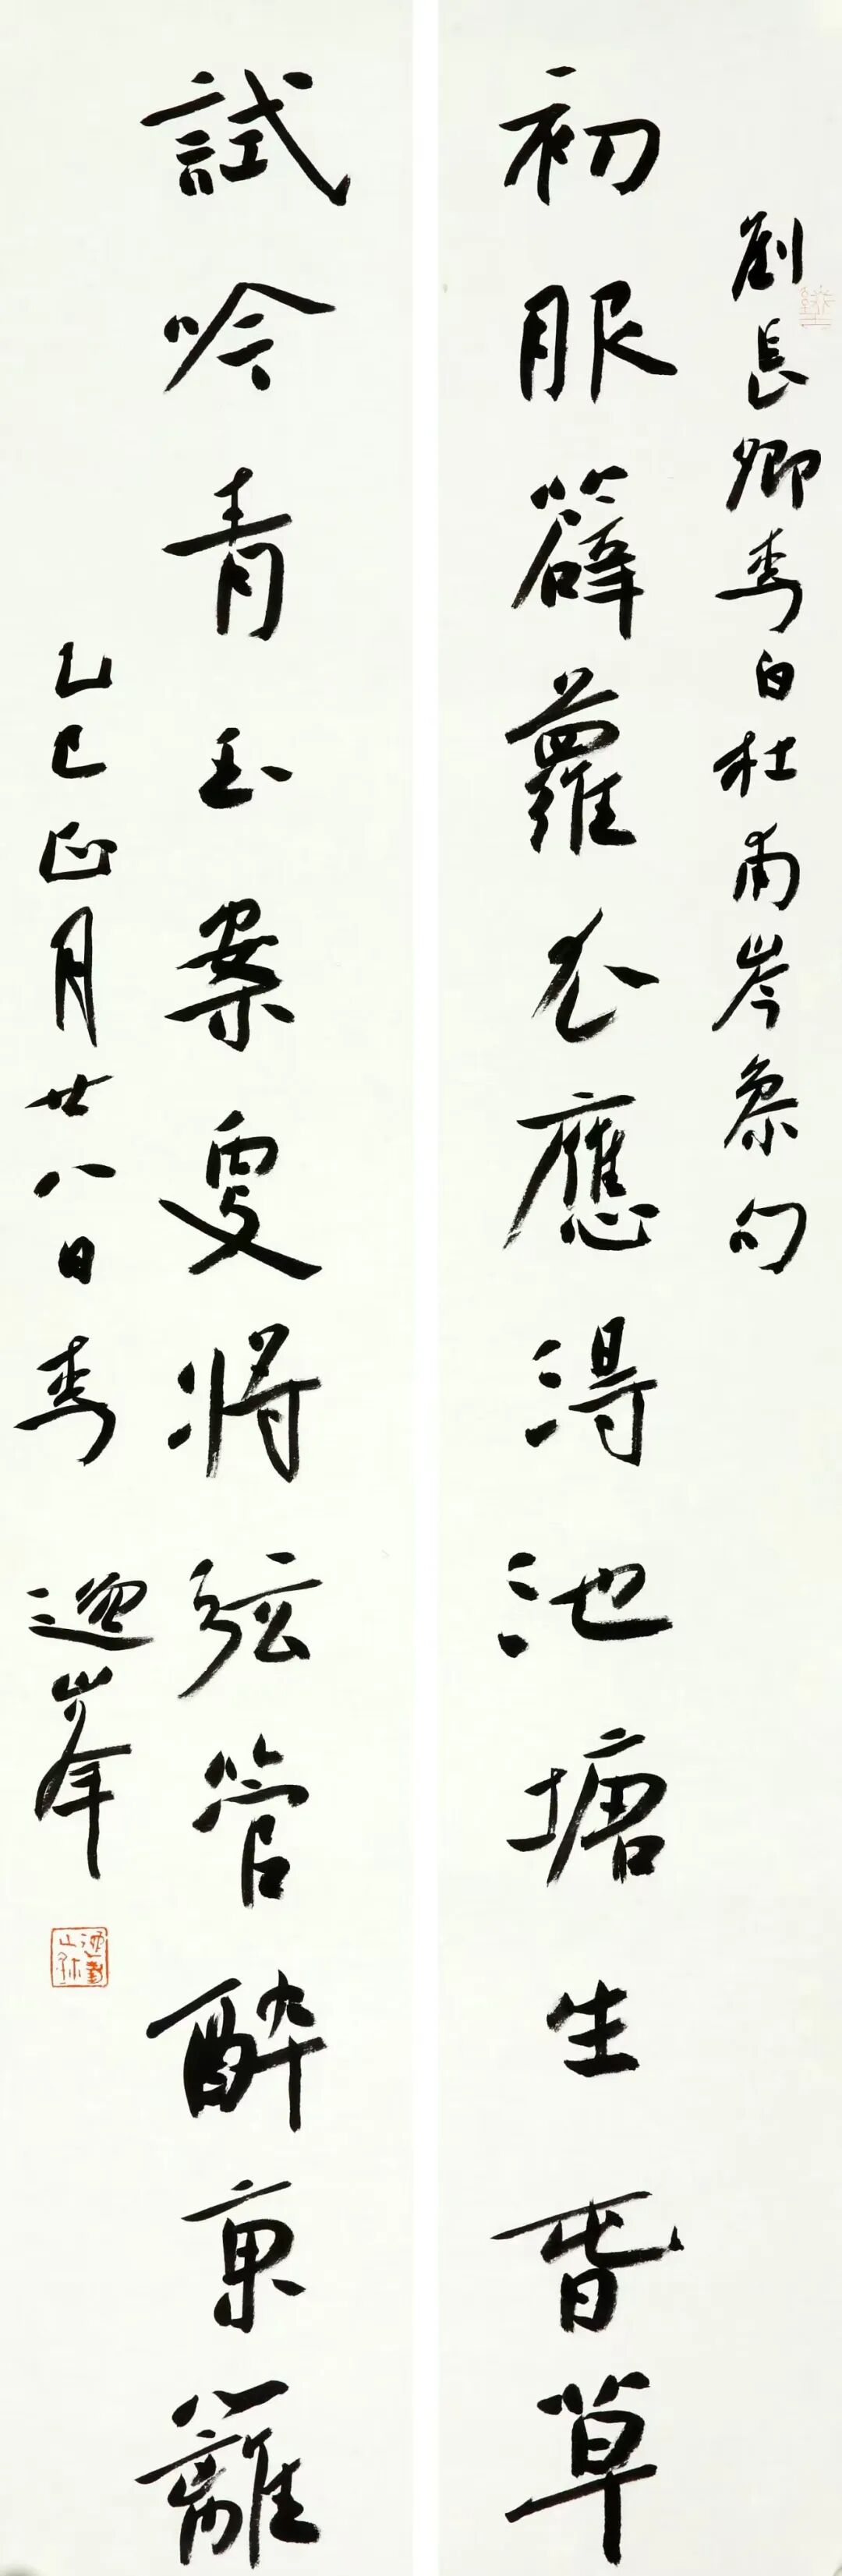 劉長卿李白杜甫岑參句
初服薜蘿衣應得池塘生春草
試吟青玉案更將弦管醉東籬
乙巳正月廿八日李逸峯